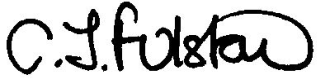 C.J. Fulston